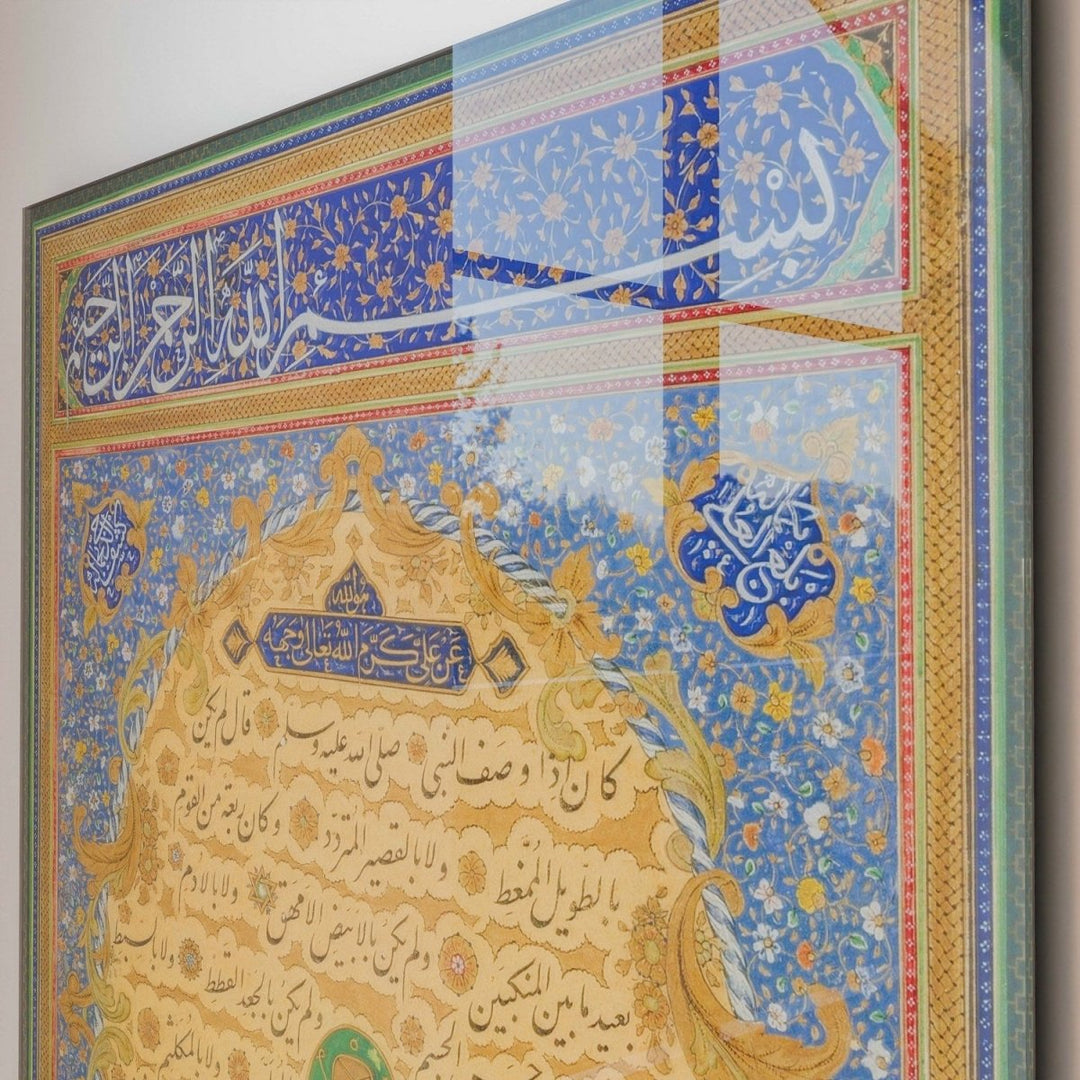 بسم الله الرحمن الرحيم
عن علي كرم الله تعالى وجهه
كان اذا وصف النبي صلى الله عليه وسلم قال لم يكن
بالطويل الممغط ولا بالقصير المتردد وكان ربعة من القوم
بعيد ما بين المنكبين ولم يكن بالابيض الامهق ولا بالادم
ولم يكن بالجعد القطط ولا بالسبط
ولا بالمكلثم